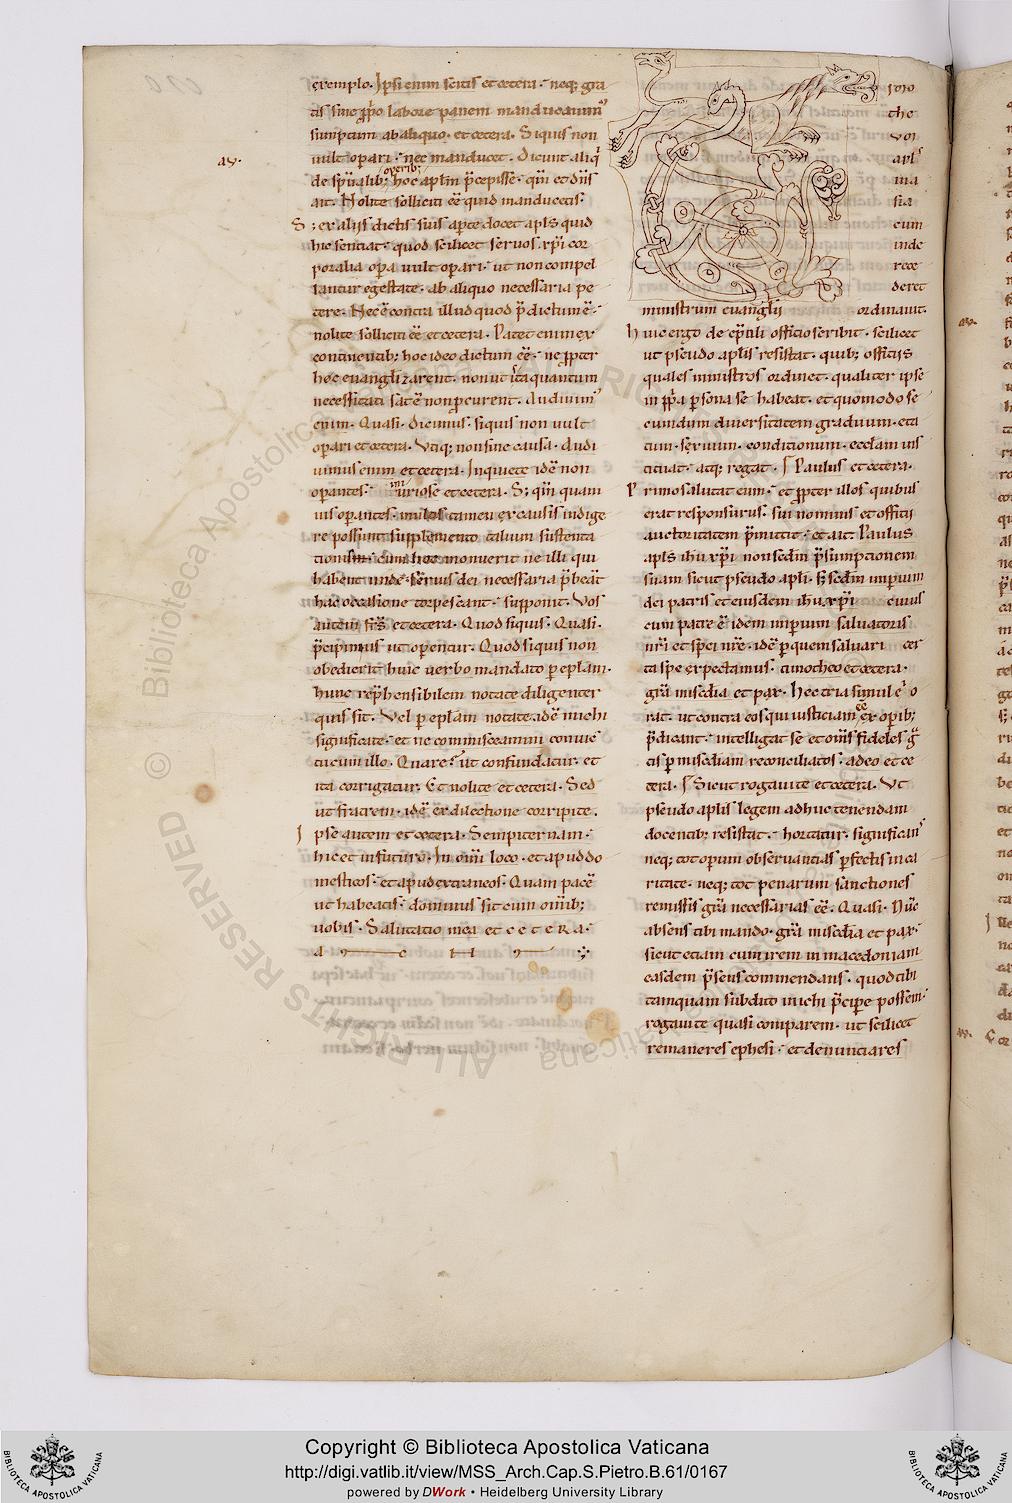 exemplo. Ipsi enim scitis et cetera. neq; gra
tis sine pp̄o labore panem manducauim᾿
sumptum ab aliquo. et cetera. Si quis non
uult operari. nec manducet. Dicunt aliq̄
operib;
de sp̄ualib; hoc aplm̄ p̄cepisse. qm̄ et dn̄s
ait. Nolite solliciti eē quid manducetis.
S; ex alijs dictis suis aperte docet apl̄s quid
hic sentiat. quod scilicet seruos xp̄i cor
poralia opera uult operari. ut non compel
lantur egestate. ab aliquo necessaria pe
tere. Nec ē contra illud quod p̄dictum ē.
nolite solliciti eē et cetera. Patet enim ex
continentib; hoc ideo dictum eē. ne pp̄ter
hoc euangl̄izarent. non ut ista quantum
necessitati sat ē non p̄curent. Audiuim᾿
enim. Quasi. dicimus. si quis non uult
operari et cetera. Vtiq; non sine causa. Audi
uimus enim et cetera. Inquiete idē non
operantes. curiose et cetera. S; qm̄ quam
uis operantes. multos tamen ex causis indige
re possunt supplemento talium sustenta
tionum. cum hoc monuerit ne illi qui
habent unde seruis dei necessaria p̄beāt
hac occasione torpescant. supponit. Vos
autem frs̄ et cetera. Quod si quis. Quasi.
p̄cipimus ut operentur. Quod si quis non
obedierit huic uerbo mandato per epl̄am.
hunc rep̄hensibilem notate diligenter
quis sit. Vel per epl̄am notate. idē michi
significate. et ne commisceamini conuic
tu cum illo. Quare? ut confundatur. et
ita corrigatur. Et nolite et cetera. Sed
ut fratrem. idē ex dilectione corripite.
Ipse autem et cetera. Sempiternam.
hic et in futuro. In om̄i loco. et apud do
mesticos. et apud extraneos. Quam pacē
ut habeatis. dominus sit cum om̄ib;
uobis. Salutatio mea et ceteRa.
aṽ.
imo
the
um
apl̄s
in a
sia
cum
inde
rece
deret
ministrum euanglij ordinauit.
huic ergo de ep̄cali officio scribit. scilicet
ut pseudo aplis resistat. quib; officijs
quales ministros ordinet. qualiter ipse
in pp̄a persona se habeat. et quomodo se
cundum diuersitatem graduum. eta
tum. sexuum. conditionum. eccl̄am ins
tituat. atq; regat. Paulus et cetera.
Primo salutat eum. et pp̄ter illos quibus
erat responsurus. sui nominis et officii
auctoritatem p̄mittit. et ait Paulus
apl̄s ih̄u xp̄i non scd̄m p̄sumptionem
suam sicut pseudo apl̄i. s; scd̄m imperium
dei patris et eiusdem ih̄u xp̄i cuius
cum patre ē idem imperium saluatoris
nr̄i et spei nr̄e. idē per quem saluari cer
ta spe expectamus. timotheo et cetera.
gr̄a misc̄dia et pax. Hec tria simul ei o
rat. ut contra eos qui iusticiam eē ex operib;
p̄dicant. intelligat se et om̄s fideles gr̄a
tis per misc̄diam reconciliatos. a deo et ce
tera. Sicut rogaui te et cetera. Vt
pseudo aplis legem adhuc tenendam
docentib; resistat. hortatur. significans
neq; tot operum obseruantias perfectis in ca
ritate. neq; tot penarum sanctiones
remissis gr̄a necessarias eē. Quasi. Nūc
absens tibi mando. gr̄a misc̄dia et pax.
sicut etiam cum irem in macedoniam
easdem p̄sens commendans. quod tibi
tamquam subdito michi p̄cipere possem.
rogaui te quasi comparem. ut scilicet
remaneres ephesi. et denunciares
Copyright © Biblioteca Apostolica Vaticana
http://digi.vatlib.it/view/MSS_Arch.Cap.S.Pietro.B.61/0167
powered by DWork • Heidelberg University Library
BIBLIOTECA APOSTOLICA VATICANA
BIBLIOTECA APOSTOLICA VATICANA
© Biblioteca Apostolica Vaticana ALL RIGHTS RESERVED